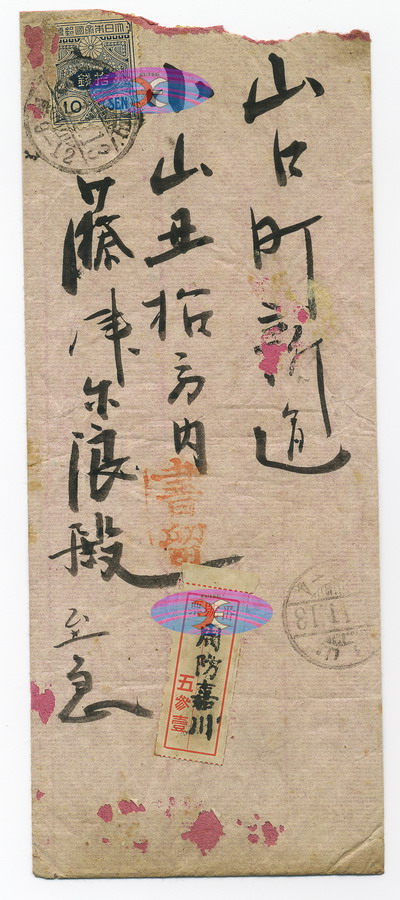 山口町新道
小山丑拾方内
藤津弥浪殿
至急
書留
大日本帝國郵便
拾錢
10 SEN
周防嘉川
五参壹